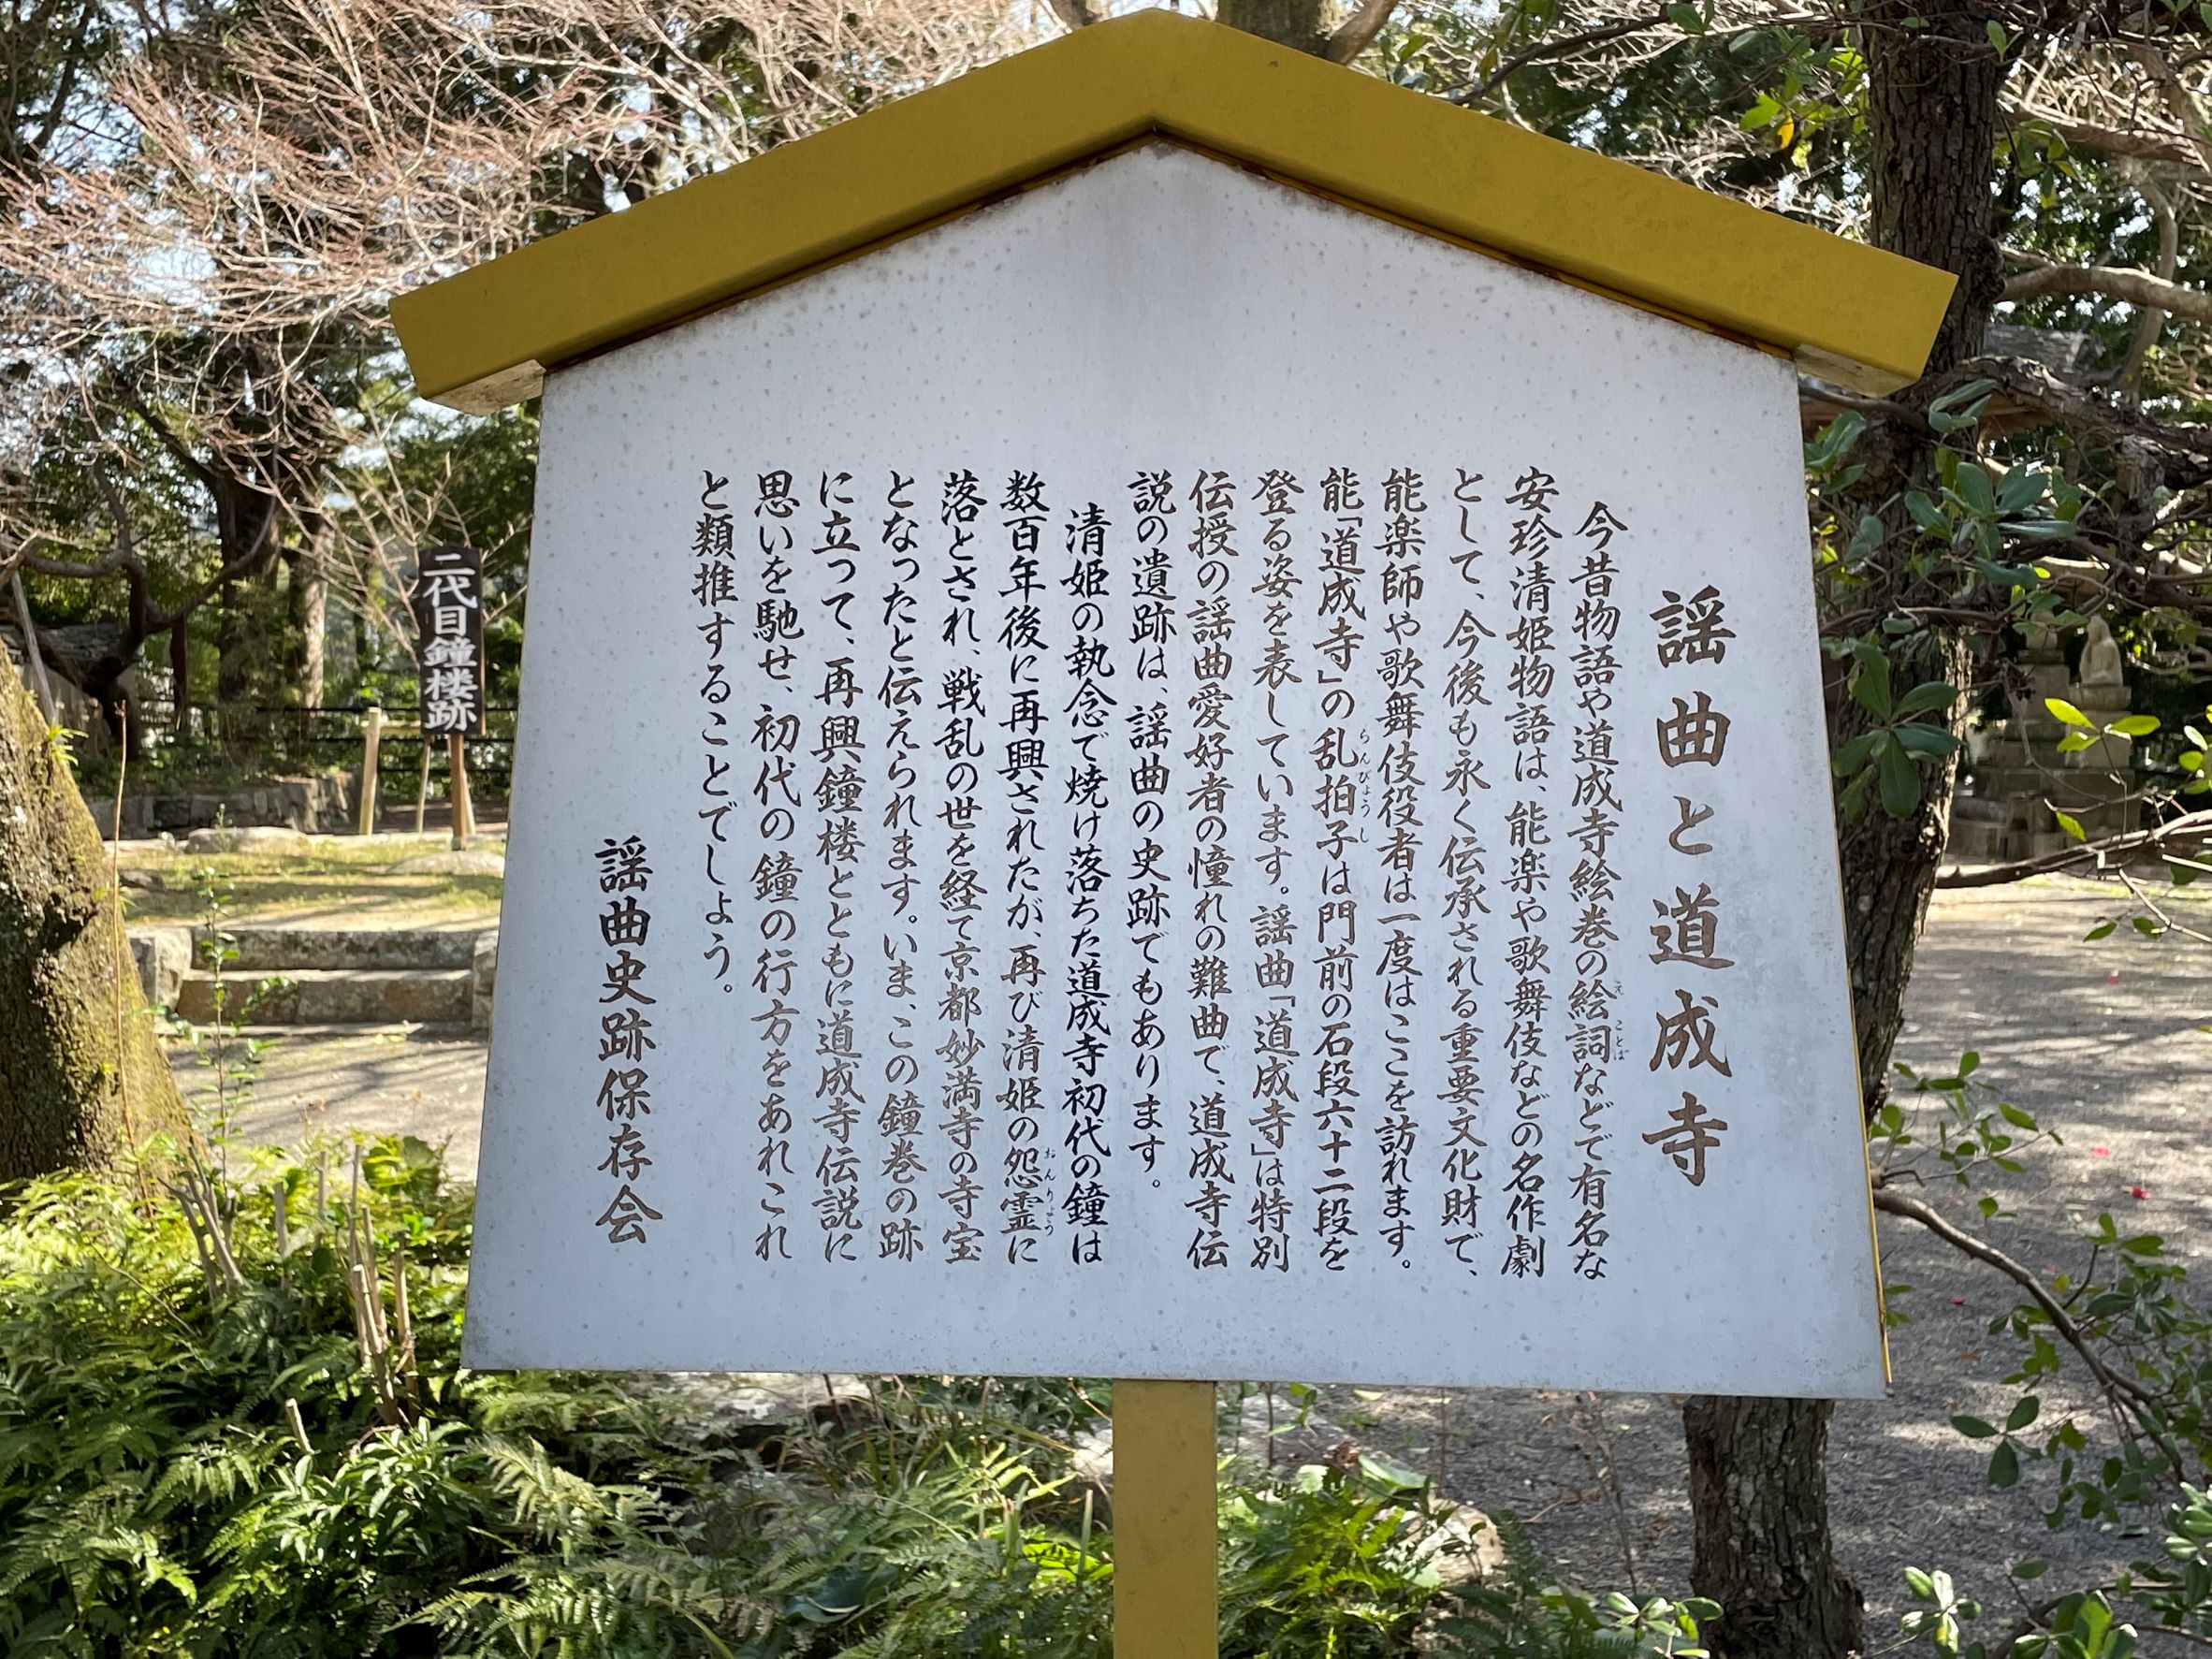 謡曲と道成寺
今昔物語や道成寺絵巻の絵詞などで有名な
安珍清姫物語は、能楽や歌舞伎などの名作劇
として、今後も永く伝承される重要文化財で、
能楽師や歌舞伎役者は一度はここを訪れます。
能「道成寺」の乱拍子は門前の石段六十二段を
登る姿を表しています。謡曲「道成寺」は特別
伝授の謡曲愛好者の憧れの難曲で、道成寺伝
説の遺跡は、謡曲の史跡でもあります。
清姫の執念で焼け落ちた道成寺初代の鐘は
数百年後に再興されたが、再び清姫の怨霊に
落とされ、戦乱の世を経て京都妙満寺の寺宝
となったと伝えられます。いま、この鐘巻の跡
に立って、再興鐘楼とともに道成寺伝説に
思いを馳せ、初代の鐘の行方をあれこれ
と類推することでしょう。
謡曲史跡保存会
二代目鐘楼跡